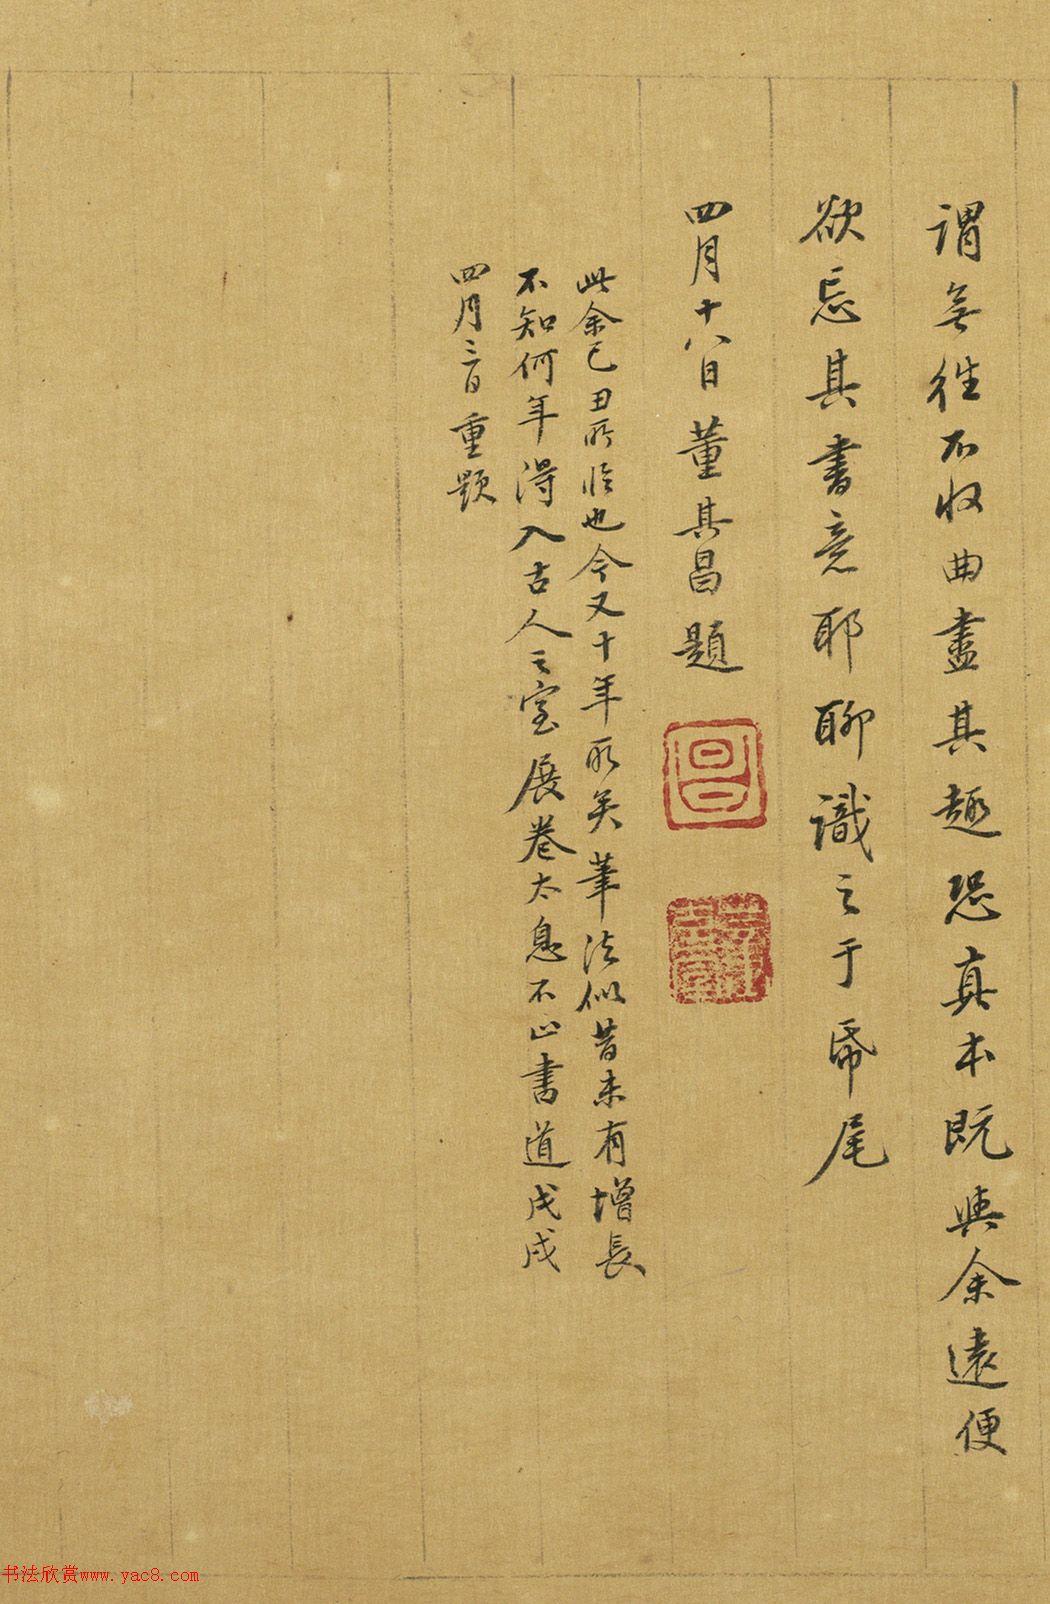 謂無往不收曲盡其趣恐真本既與余遠便
欲忘其書意耶聊識之于帋尾
四月十八日董其昌題
昌
此余己丑所臨也今又十年所矣筆法似昔未有增長
不知何年得入古人之室展卷太息不止書道戊戌
四月三日重題
书法欣赏www.yac8.com